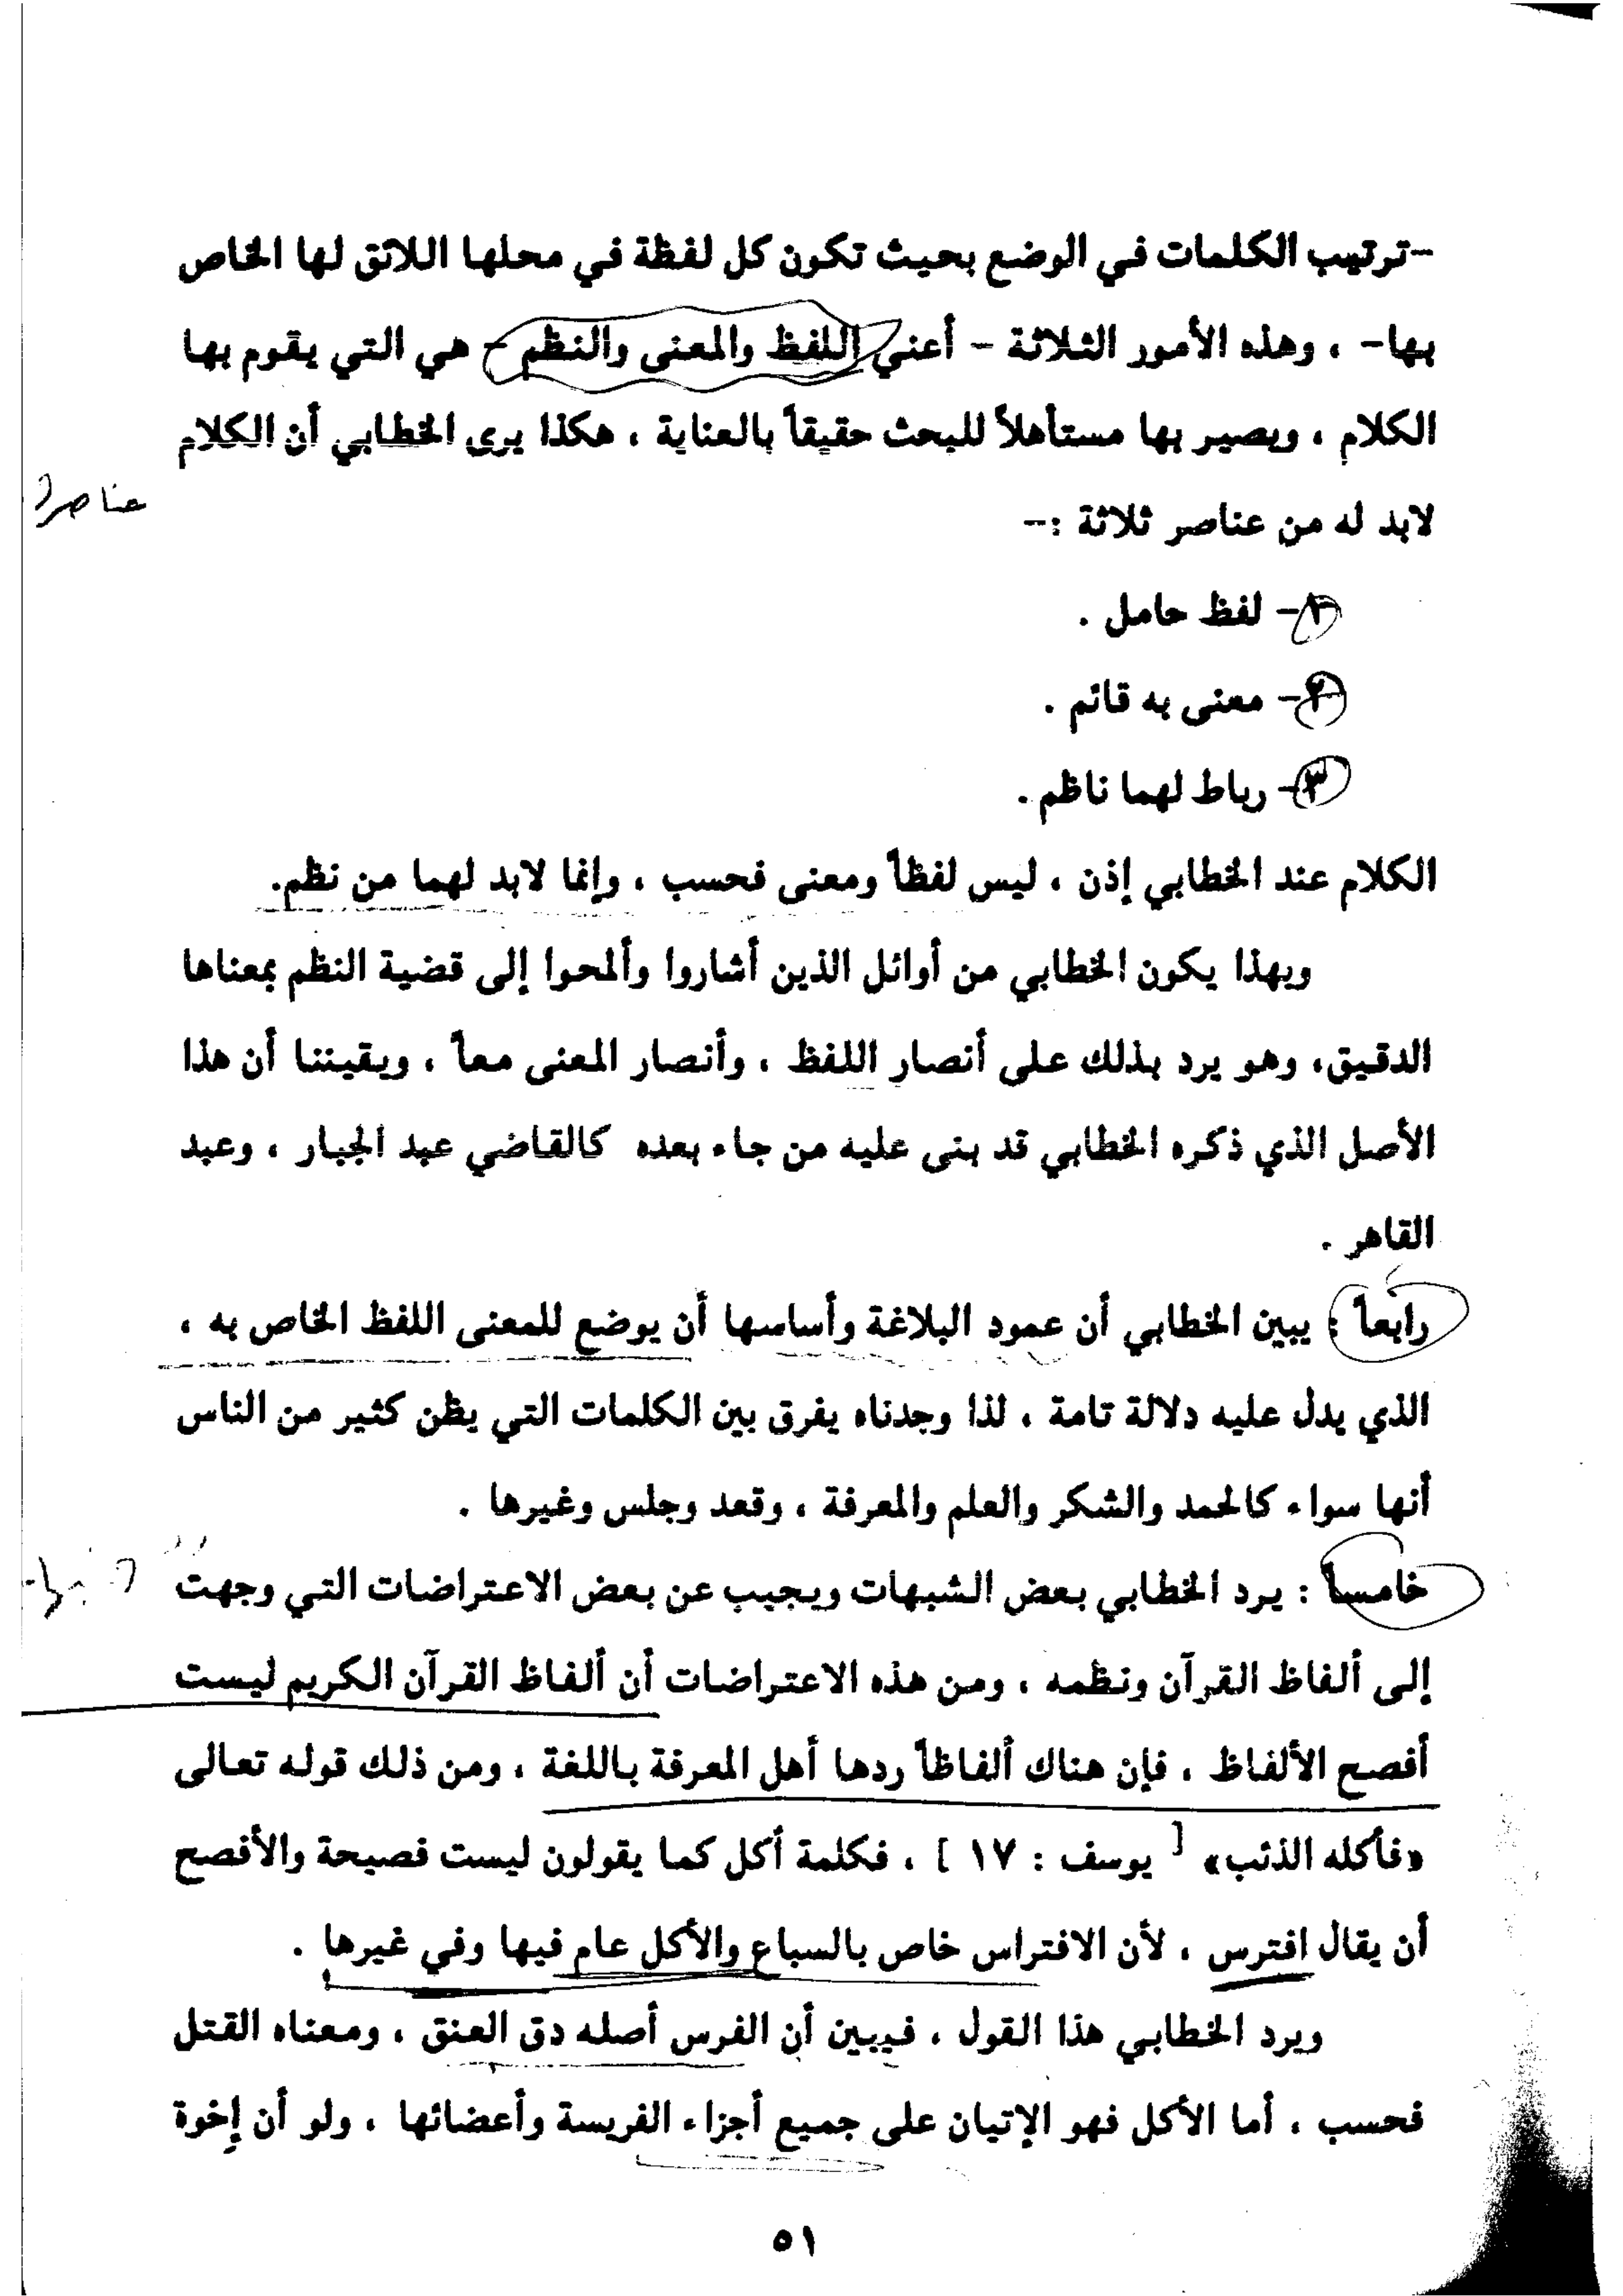 -ترتيب الكلمات في الوضع بحيث تكون كل لفظة في محلها اللائق لها الخاص
بها- ، وهذه الأمور الثلاثة - أعني اللفظ والمعنى والنظم - هي التي يقوم بها
الكلام ، ويصير بها مستأهلاً للبحث حقيقاً بالعناية ، هكذا يرى الخطابي أن الكلام
لابد له من عناصر ثلاثة :-
عناصر
١- لفظ حامل .
٢- معنى به قائم .
٣- رباط لهما ناظم .
الكلام عند الخطابي إذن ، ليس لفظاً ومعنى فحسب ، وإنما لابد لهما من نظم.
وبهذا يكون الخطابي من أوائل الذين أشاروا وألمحوا إلى قضية النظم بمعناها
الدقيق، وهو يرد بذلك على أنصار اللفظ ، وأنصار المعنى معاً ، ويقيننا أن هذا
الأصل الذي ذكره الخطابي قد بنى عليه من جاء بعده كالقاضي عبد الجبار ، وعبد
القاهر .
رابعاً : يبين الخطابي أن عمود البلاغة وأساسها أن يوضع للمعنى اللفظ الخاص به ،
الذي يدل عليه دلالة تامة ، لذا وجدناه يفرق بين الكلمات التي يظن كثير من الناس
أنها سواء كالحمد والشكر والعلم والمعرفة ، وقعد وجلس وغيرها .
خامساً : يرد الخطابي بعض الشبهات ويجيب عن بعض الاعتراضات التي وجهت
إلى ألفاظ القرآن ونظمه ، ومن هذه الاعتراضات أن ألفاظ القرآن الكريم ليست
أفصح الألفاظ ، فإن هناك ألفاظاً ردها أهل المعرفة باللغة ، ومن ذلك قوله تعالى
«فأكله الذئب» [ يوسف : ١٧ ] ، فكلمة أكل كما يقولون ليست فصيحة والأفصح
أن يقال افترس ، لأن الافتراس خاص بالسباع والأكل عام فيها وفي غيرها .
ويرد الخطابي هذا القول ، فيبين أن الفرس أصله دق العنق ، ومعناه القتل
فحسب ، أما الأكل فهو الإتيان على جميع أجزاء الفريسة وأعضائها ، ولو أن إخوة
٥١